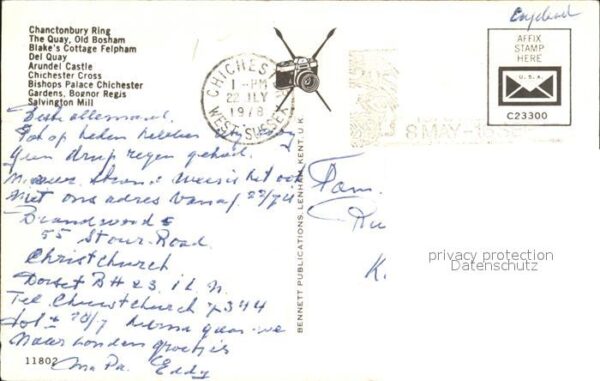 Chanctonbury Ring
The Quay, Old Bosham
Blake's Cottage Felpham
Del Quay
Arundel Castle
Chichester Cross
Bishops Palace Chichester
Gardens, Bognor Regis
Salvington Mill
England
AFFIX
STAMP
HERE
U.S.A.
C23300
CHICHES
1-PM
22 JLY
1978
WEST SUSSEX
8 MAY-
Beste allemaal.
Tot op heden hebben
Geen drup regen gehad.
is het
Met ons adres Vanaf 22/7
Brandwoods
55 Stour Road
Christchurch
Dorset BH23.1LN.
Tel Christchurch 7344
tot 30/7 hierna gaan we
Naar Londen groetjes
Ma Pa. Eddy
11802
BENNETT PUBLICATIONS, LENHAM, KENT, U.K.
Fam.
K.
privacy protection
Datenschutz